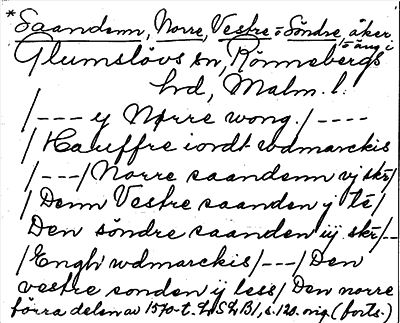 *Saandenn, Norre, Vestre = Söndre, åker
= äng i
Glumslövs sn, Rönnebergs
hd, Malm. l.
/--- y Nørre wong./----
/Hauffre iordt wdmarckis
/---/Norre saandenn vj skr/
/Denn Vestre saanden y te/
Den søndre saanden iij skr/--
/Engh wdmarckis/---/Den
vestre sonden ij less/Den norre
förra delen av 1570-t. LSLB1, s. 120. orig. (forts.)